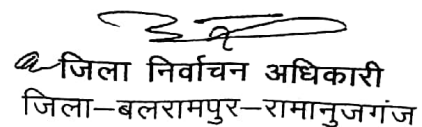 जिला निर्वाचन अधिकारी
जिला–बलरामपुर–रामानुजगंज